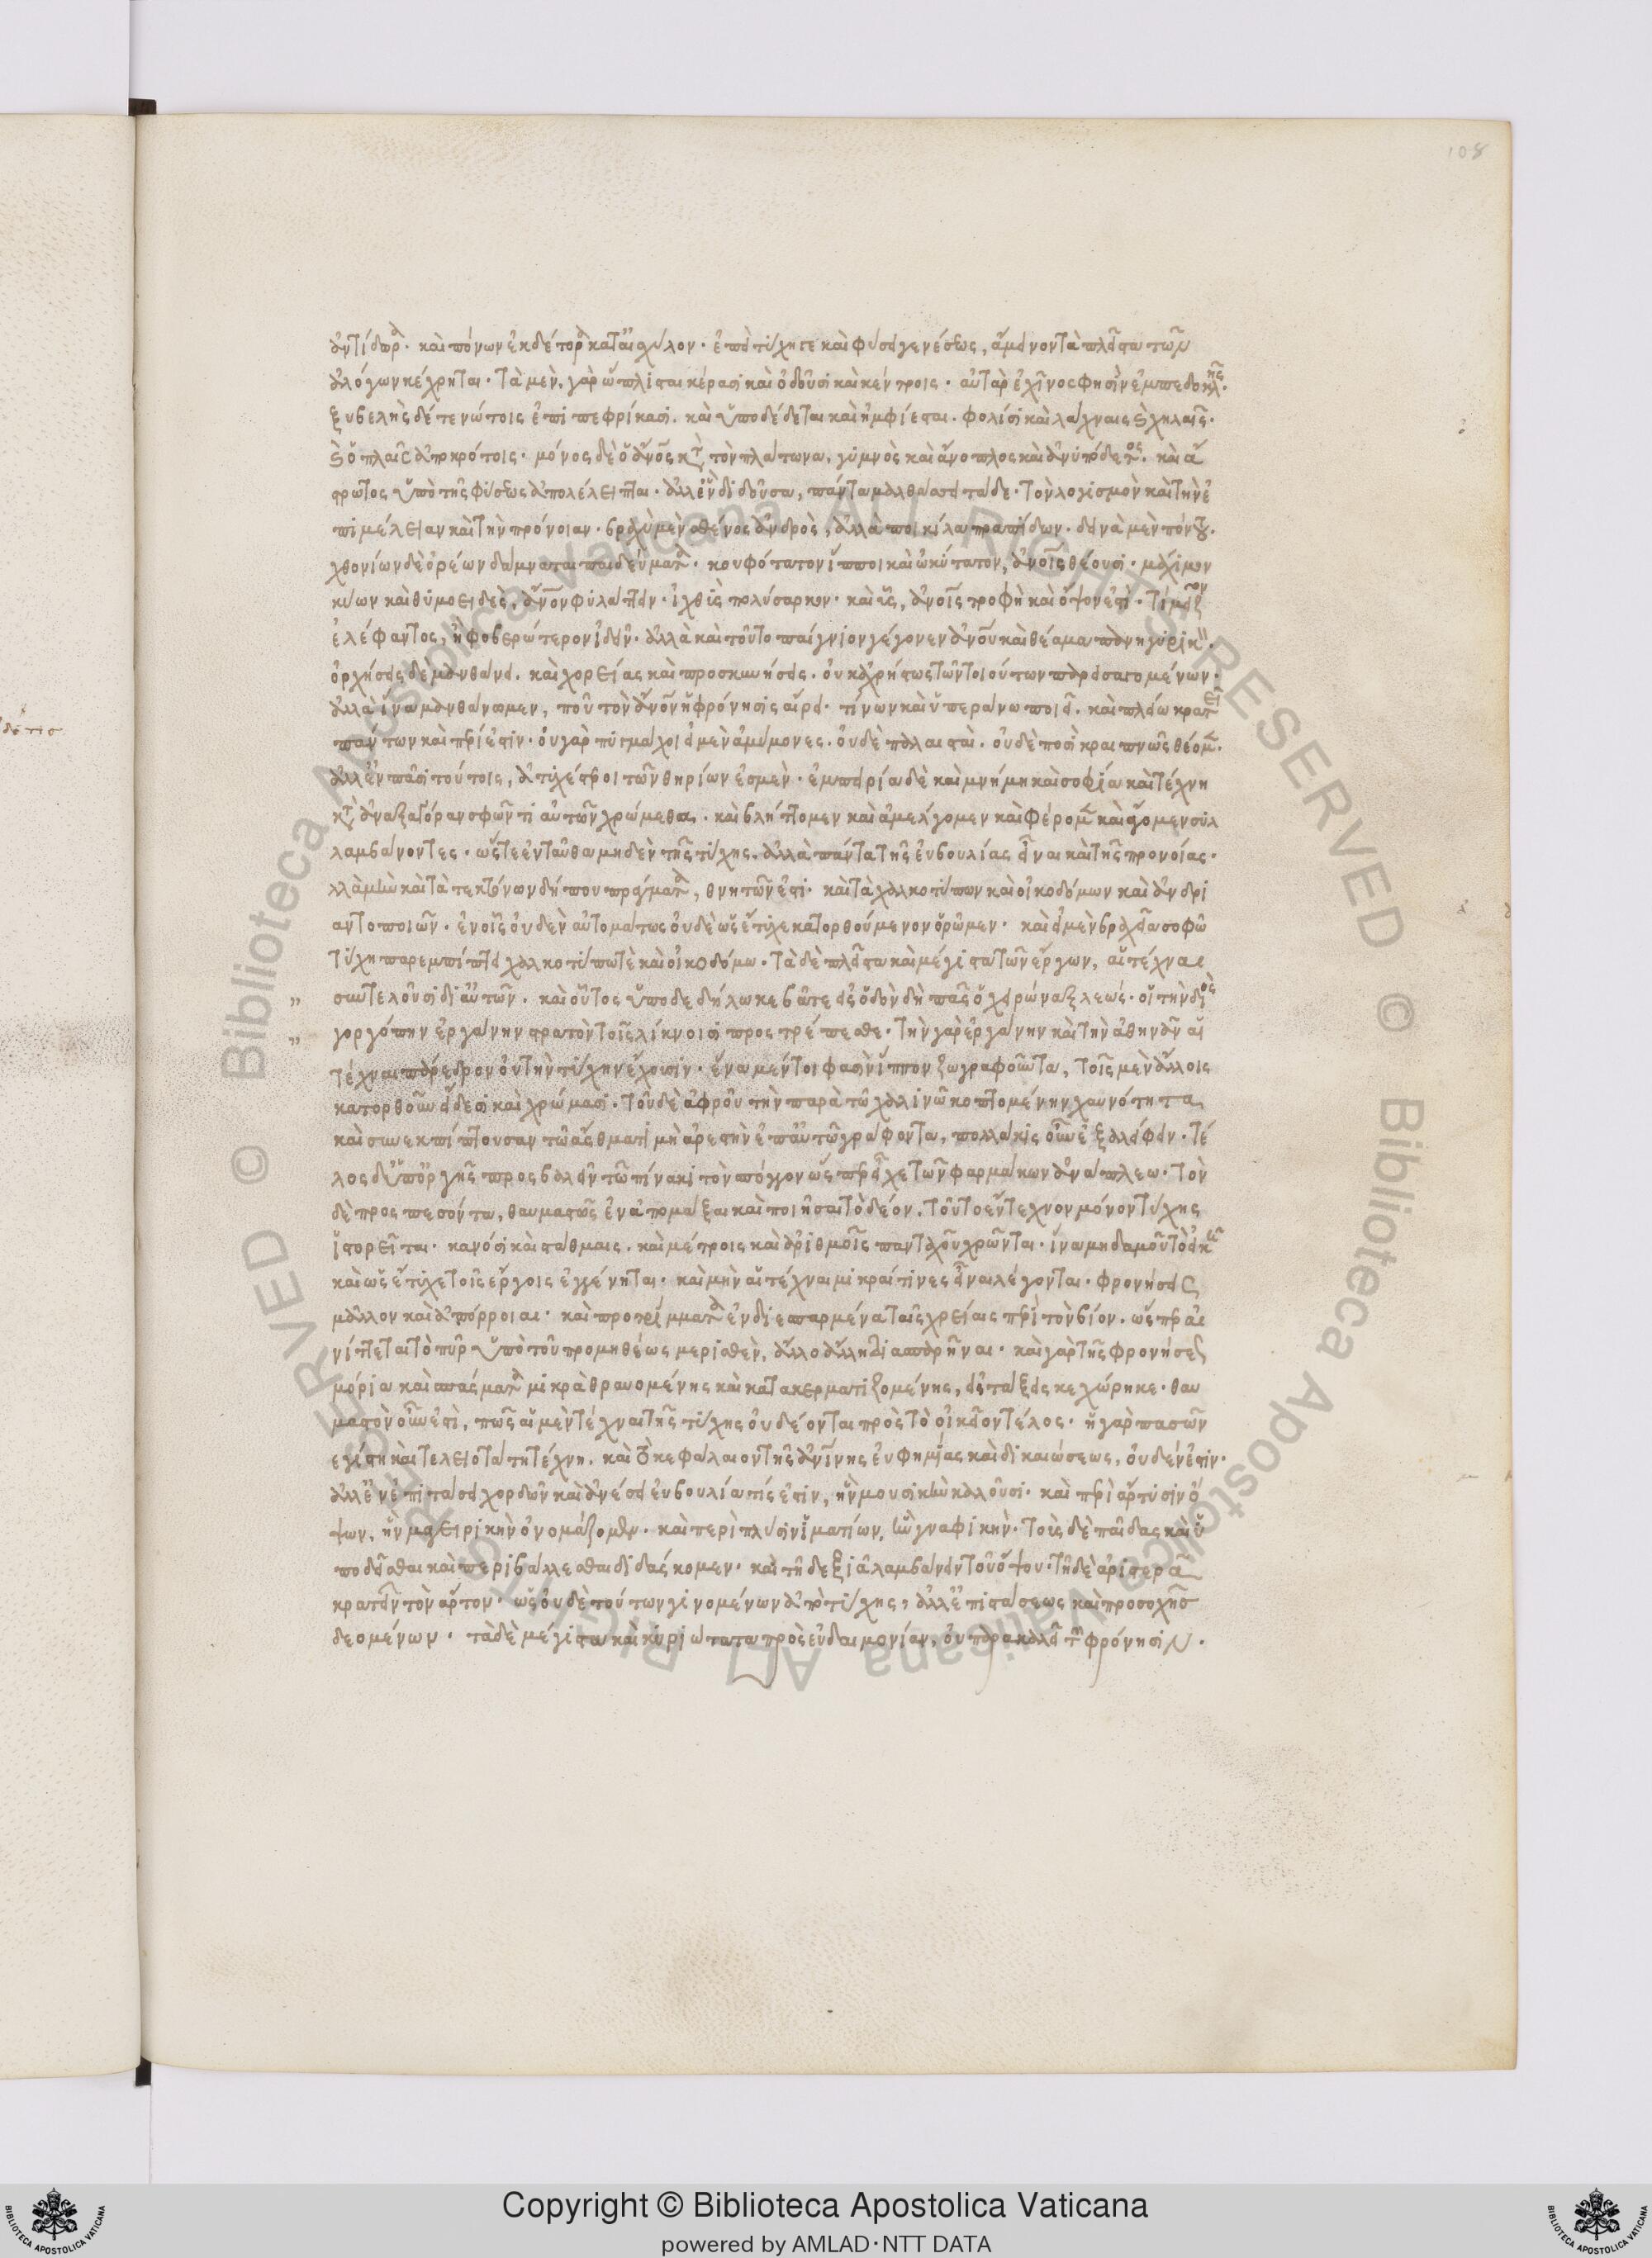 108
ἀντίδωρα· καὶ πόνων ἐκδέκτορα κατ' αἰσχύλον· ἐπεὶ τύχη γε καὶ φύσει γενέσεως, ἀμείνονι τὰ πλεῖστα τῶν
ἀλόγων κέχρηται· τὰ μὲν γὰρ ὥπλισται κέρασι καὶ ὀδοῦσι καὶ κέντροις· αὐτὰρ ἐχῖνος φησὶν ἐμπεδοκλῆς·
ξυβελὴς δέ τε νώτοις ἐπιπεφρίκασι. καὶ ὑποδέδεται καὶ ἠμφίεσται φολίσι καὶ λάχναις καὶ χηλαῖς·
καὶ ὁπλαῖς ἀποκρότοις· μόνος δὲ ὁ ἄνθρωπος κατὰ τὸν πλάτωνα, γυμνὸς καὶ ἄνοπλος καὶ ἀνυπόδετος. καὶ ἄ
στρωτος ὑπὸ τῆς φύσεως ἀπολέλειπται· ἀλλ' ἓν διδοῦσα, πάντα μαλθάσσει τάδε· τὸν λογισμὸν καὶ τὴν ἐ
πιμέλειαν καὶ τὴν πρόνοιαν· βραχὺ μὲν σθένος ἀνδρὸς, ἀλλὰ ποικίλα πραπίδων· δεινὰ μὲν πόντου·
χθονίων δὲ ὀρέων δάμναται παιδεύματα· κουφότατον ἵπποι καὶ ὠκύτατον, ἀνθρώποις θέουσι· μάχιμον
κύων καὶ θυμοειδὲς, ἄνθρωπον φυλάττειν· ἰχθὺς πολύσαρκον· καὶ ὗς, ἀνθρώποις τροφὴ καὶ ὄψον ἐστὶ· τί μεῖζον
ἐλέφαντος, ἢ φοβερώτερον ἰδεῖν· ἀλλὰ καὶ τοῦτο παίγνιον γέγονεν ἀνθρώπου καὶ θέαμα πανηγυρικὸν·
ὀρχήσεις δὲ μανθάνει. καὶ χορείας καὶ προσκυνήσεις. οὐκ ἀχρήστως τῶν τοιούτων παρεισαγομένων·
ἀλλὰ ἵνα μανθάνωμεν, ποῦ τὸν ἄνθρωπον ἡ φρόνησις αἴρει· τίνων καὶ ὑπεράνω ποιεῖ. καὶ πλείω κρατεῖ
πάντων καὶ περίεστιν· οὐ γὰρ πυγμάχοι εἰμὲν ἀμύμονες. οὐδὲ παλαισταὶ. οὐδὲ ποσὶ κραιπνῶς θέομεν·
ἀλλ' ἐν πᾶσι τούτοις, ἀτυχέστεροι τῶν θηρίων ἐσμὲν· ἐμπειρία δὲ καὶ μνήμη καὶ σοφία καὶ τέχνη
κατὰ ἀναξαγόραν σφῶν τι αὐτῶν χρώμεθα. καὶ βλίττομεν καὶ ἀμέλγομεν καὶ φέρομεν καὶ ἄγομεν συλ
λαμβάνοντες· ὥστε ἐνταῦθα μηδὲν τῆς τύχης. ἀλλὰ πάντα τῆς εὐβουλίας εἶναι καὶ τῆς προνοίας·
λλὰ μὴν καὶ τὰ τεκτόνων δήπου πράγματα, θνητῶν ἐστι· καὶ τὰ χαλκοτύπων καὶ οἰκοδόμων καὶ ἀνδρι
αντοποιῶν· ἐν οἷς οὐδὲν αὐτομάτως οὐδὲ ὡς ἔτυχε κατορθούμενον ὁρῶμεν· καὶ εἰ μὲν βραχεῖα σοφῶ
τύχη παρεμπίπτει χαλκοτύπω τὲ καὶ οἰκοδόμω· τὰ δὲ πλεῖστα καὶ μέγιστα τῶν ἔργων, αἱ τέχναι
συντελοῦσι δι' αὐτῶν. καὶ οὗτος ὑποδεδήλωκε βᾶτε εἰς ὁδὸν δὴ πᾶς ὁ χειρώναξ λεώς· οἳ τὴν διὸς
γοργώπην ἐργάνην στρατὸν τοῖς λίκνοισι προστρέπεσθε· τὴν γὰρ ἐργάνην καὶ τὴν ἀθηνᾶν αἱ
τέχναι πάρεδρον οὐ τὴν τύχην ἔχουσιν· ἕνα μέντοι φασὶν ἵππον ζωγραφοῦντα, τοῖς μὲν ἄλλοις
κατορθοῦν εἴδεσι καὶ χρώμασι. τοῦ δὲ ἀφροῦ τὴν παρὰ τῶ χαλινῶ κοπτομένην χαυνότητα
καὶ συνεκπίπτουσαν τῶ ἄσθματι μὴ ἀρεστὴν ἐπ' αὐτῶ γράφοντα, πολλάκις οὖν ἐξαλείφειν· τέ
λος δ' ὑπ' ὀργῆς προσβαλεῖν τῶ πίνακι τὸν σπόγγον ὥσπερ εἶχε τῶν φαρμάκων ἀνάπλεω· τὸν
δὲ προσπεσόντα, θαυμαστῶς ἐναπομάξαι καὶ ποιῆσαι τὸ δέον. τοῦτο ἔντεχνον μόνον τύχης
ἱστορεῖται· κανόσι καὶ στάθμαις. καὶ μέτροις καὶ ἀριθμοῖς πανταχοῦ χρῶνται· ἵνα μηδαμοῦ τὸ εἰκῆ
καὶ ὡς ἔτυχε τοῖς ἔργοις ἐγγένηται· καὶ μὴν αἱ τέχναι μικραί τινες εἶναι λέγονται· φρονήσεις
μᾶλλον καὶ ἀπόρροιαι· καὶ προτρίμματα ἐνδιεσπαρμένα ταῖς χρείαις περὶ τὸν βίον. ὥσπερ αἰ
νίττεται τὸ πῦρ ὑπὸ τοῦ προμηθέως μερισθὲν, ἄλλο ἄλλη διασπαρῆναι· καὶ γὰρ τῆς φρονήσεως
μόρια καὶ σπάσματα μικρὰ θραυομένης καὶ κατακερματιζομένης, εἰς τάξεις κεχώρηκε· θαυ
μαστὸν οὖν ἐστὶ, πῶς αἱ μὲν τέχναι τῆς τύχης οὐ δέονται πρὸς τὸ οἰκεῖον τέλος· ἡ γὰρ πασῶν
εγίστη καὶ τελειοτάτη τέχνη. καὶ τὸ κεφάλαιον τῆς ἀνθρωπίνης εὐφημίας καὶ δικαιώσεως, οὐδέν ἐστιν·
ἀλλ' ἐν ἐπιτάσει χορδῶν καὶ ἀνέσει εὐβουλία τίς ἐστιν, ἣν μουσικὴν καλοῦσι· καὶ περὶ ἄρτυσιν ὄ
ψων, ἣν μαγειρικὴν ὀνομάζομεν· καὶ περὶ πλύσιν ἱματίων, ἣν γναφικήν· τοὺς δὲ παῖδας καὶ ὑ
ποδεῖσθαι καὶ περιβάλλεσθαι διδάσκομεν· καὶ τῆ δεξιᾶ λαμβάνειν τοῦ ὄψου· τῆ δὲ ἀριστερᾶ
κρατεῖν τὸν ἄρτον· ὡς οὐδὲ τούτων γινομένων ἀπὸ τύχης, ἀλλ' ἐπιστάσεως καὶ προσοχῆς
δεομένων· τὰ δὲ μέγιστα καὶ κυριώτατα πρὸς εὐδαιμονίαν, οὐ παρακαλεῖ τὴν φρόνησιν·
Copyright © Biblioteca Apostolica Vaticana
powered by AMLAD·NTT DATA